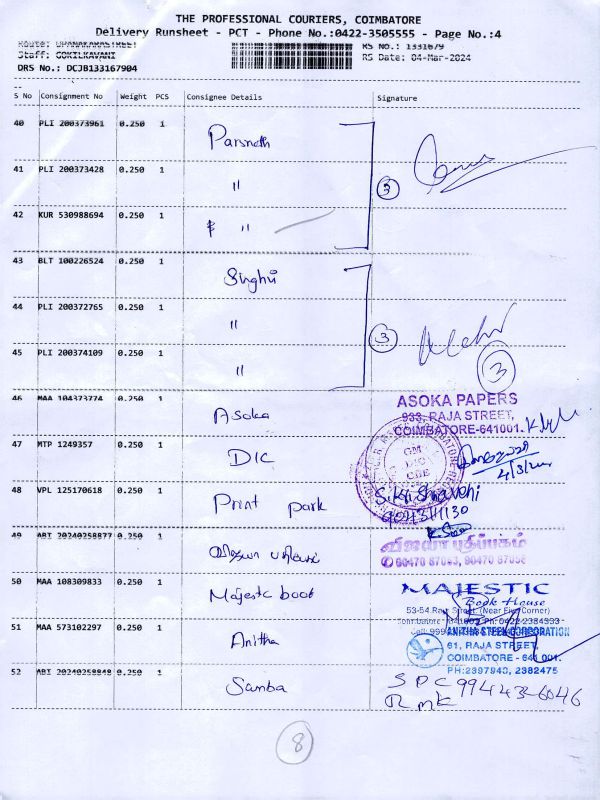 THE PROFESSIONAL COURIERS, COIMBATORE
Delivery Runsheet - PCT - Phone No.:0422-3505555 - Page No.:4
Staff: GOKILKAVANI
RS No.: 1331679
DRS No.: DCJB133167904
RS Date: 04-Mar-2024
S No Consignment No Weight PCS Consignee Details Signature
40 PLI 200373961 0.250 1 Parsnath
41 PLI 200373428 0.250 1 "
3
42 KUR 530988694 0.250 1 "
43 BLT 100226524 0.250 1 Singhvi
44 PLI 200372765 0.250 1 "
3
45 PLI 200374109 0.250 1 "
3
46 MAA 104373774 0.250 1 Asoka
ASOKA PAPERS
933, RAJA STREET,
COIMBATORE-641001.
47 MTP 1249357 0.250 1 DIC
GM
DIC
CBE
48 VPL 125170618 0.250 1 Print park
49 ABT 20240258877 0.250 1
விஜயா பதிப்பகம்
50 MAA 108309833 0.250 1 Majestic book
MAJESTIC
Book House
53-54, Raja Street, (Near Five Corner)
51 MAA 573102297 0.250 1 Anitha
ANITHA STEEL CORPORATION
61, RAJA STREET,
COIMBATORE - 641 001.
PH:2397940, 2382475
52 ABT 20240258848 0.250 1 Samba
SPC
RMK
8